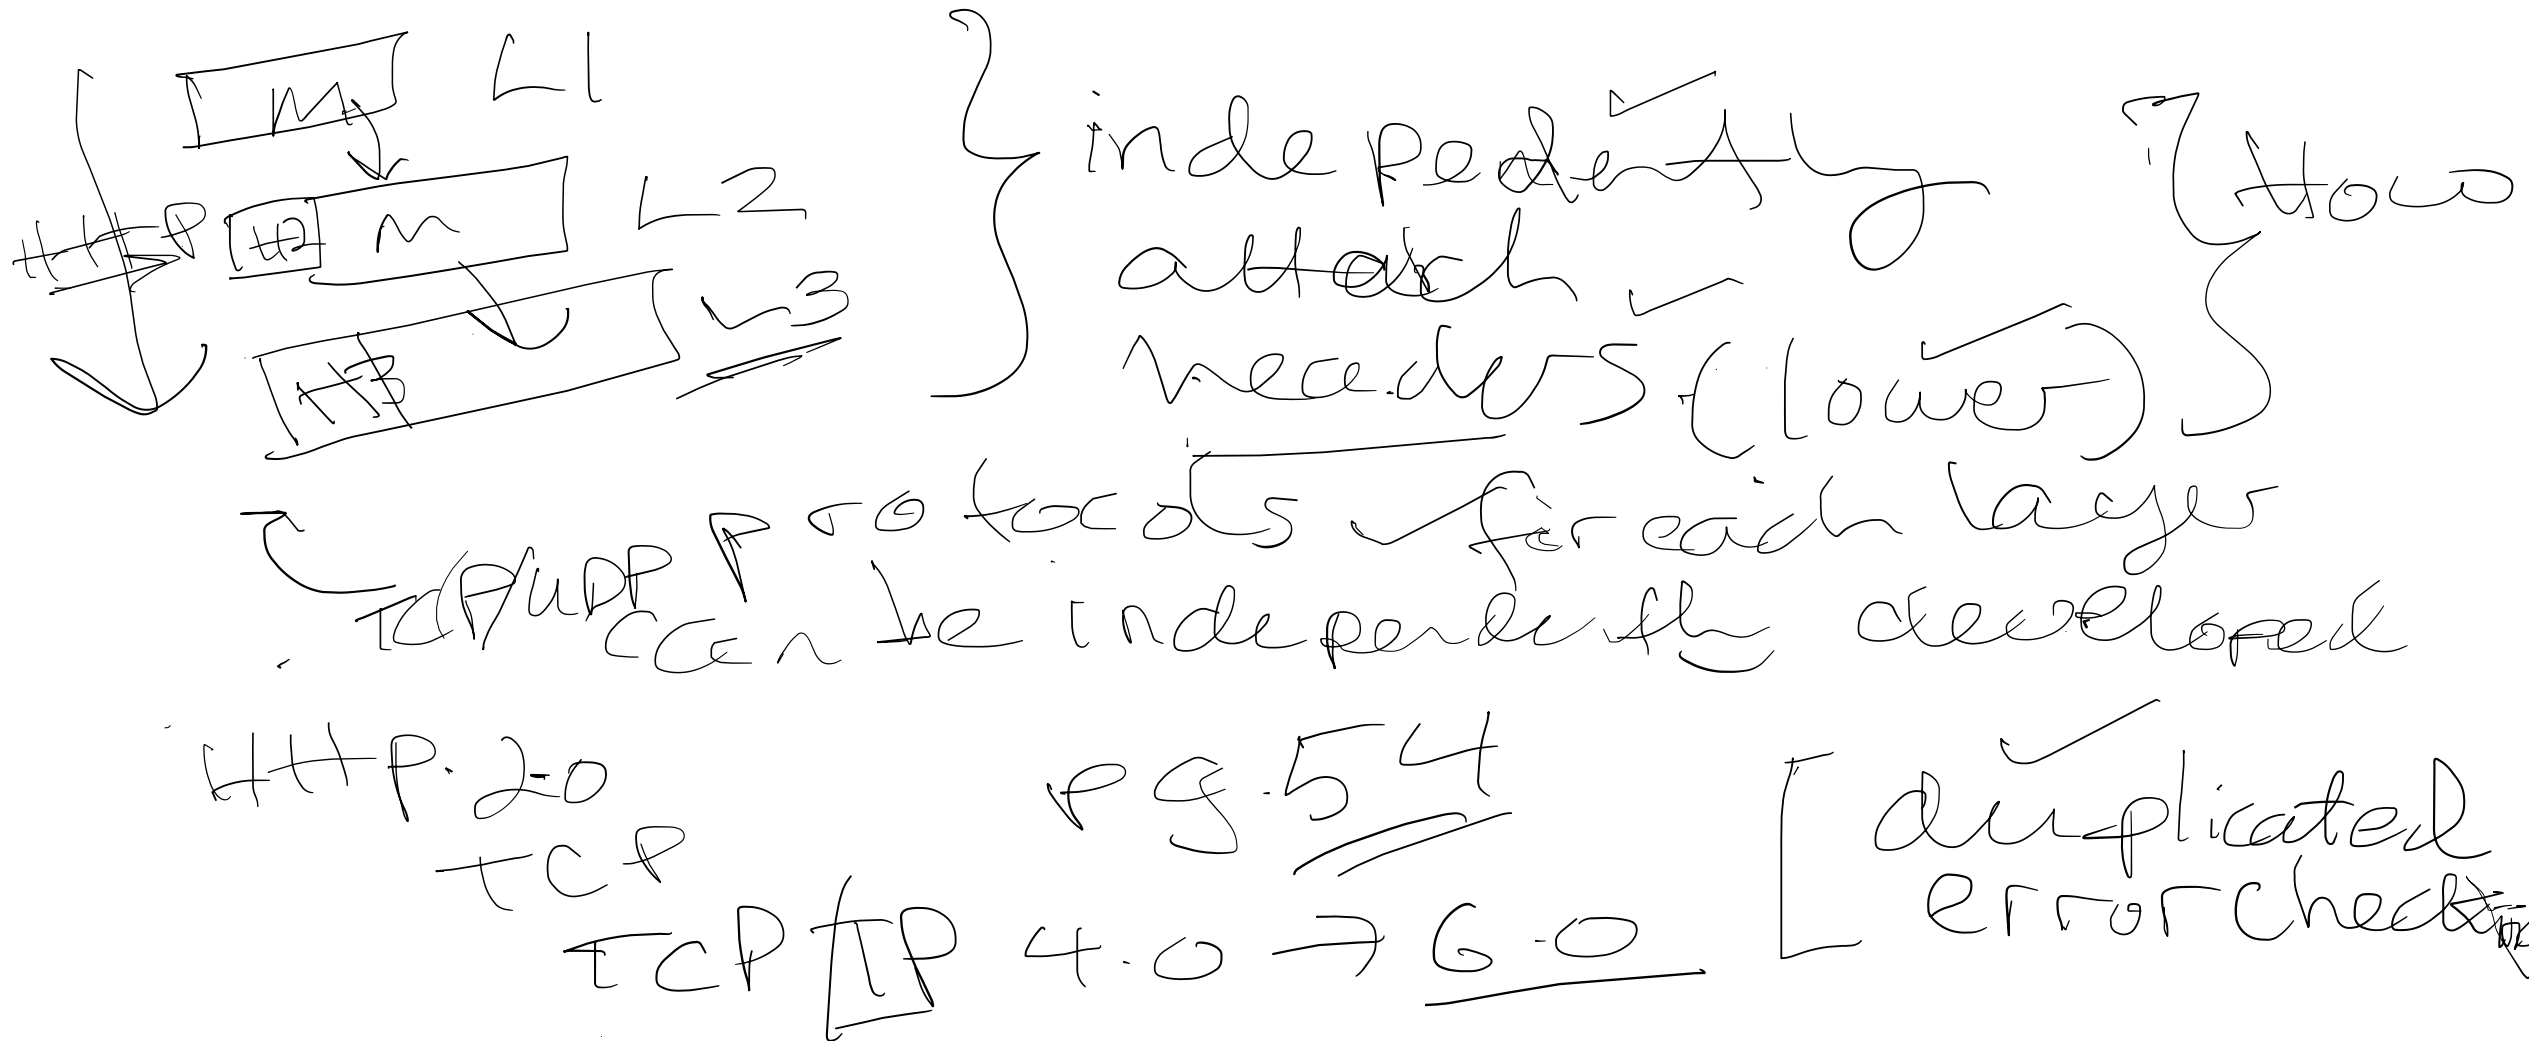 M L1
HTTP H2 M L2
H3 L3
independently
attach
headers (lower)
How
protocols for each layer
TCP/UDP
can be independently developed
HTTP 2.0
TCP
TCP IP 4.0 → 6.0
pg. 54
duplicated
error checking